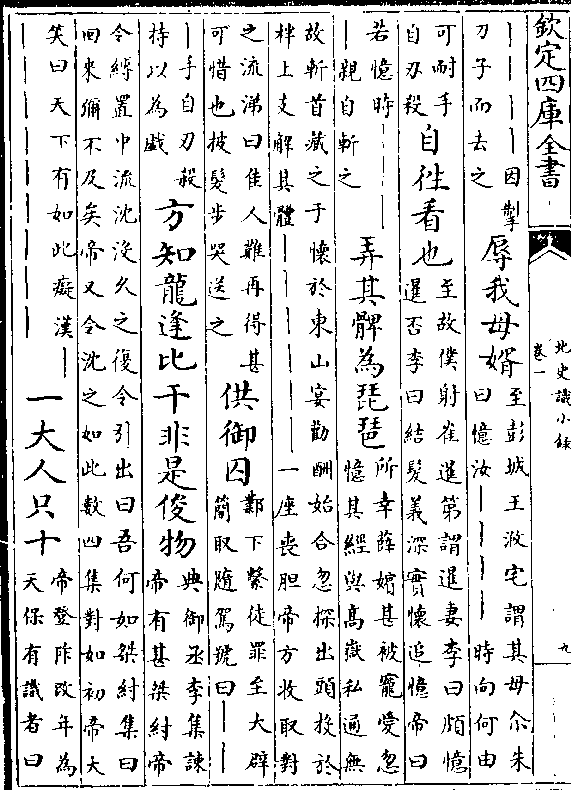 欽定四庫全書
北史識小錄
卷一
九
｜｜｜｜｜因掣
刀子而去之
辱我母婿
至彭城王浟宅謂其母尒朱
曰憶汝｜｜｜｜時向何由
可耐手
自刃殺
自往看也
至故僕射崔暹第謂暹妻李曰頗憶
暹否李曰結髮義深實懷追憶帝曰
若憶時｜｜｜
｜親自斬之
弄其髀為琵琶
所幸薛嬪甚被寵愛忽
憶其經與高嶽私通無
故斬首藏之于懷於東山宴勸酬始合忽探出頭投於
柈上支解其體｜｜｜｜｜｜一座喪胆帝方收取對
之流涕曰佳人難再得甚
可惜也披髮步哭送之
供御囚
鄴下繫徒罪至大辟
簡取隨駕號曰｜｜
｜手自刃殺
持以為戲
方知龍逢比干非是俊物
典御丞李集諫
帝有甚桀紂帝
令縛置中流沈沒久之復令引出曰吾何如桀紂集曰
回來彌不及矣帝又令沈之如此數四集對如初帝大
笑曰天下有如此癡漢｜
｜｜｜｜｜｜｜｜｜
一大人只十
帝登阼改年為
天保有識者曰